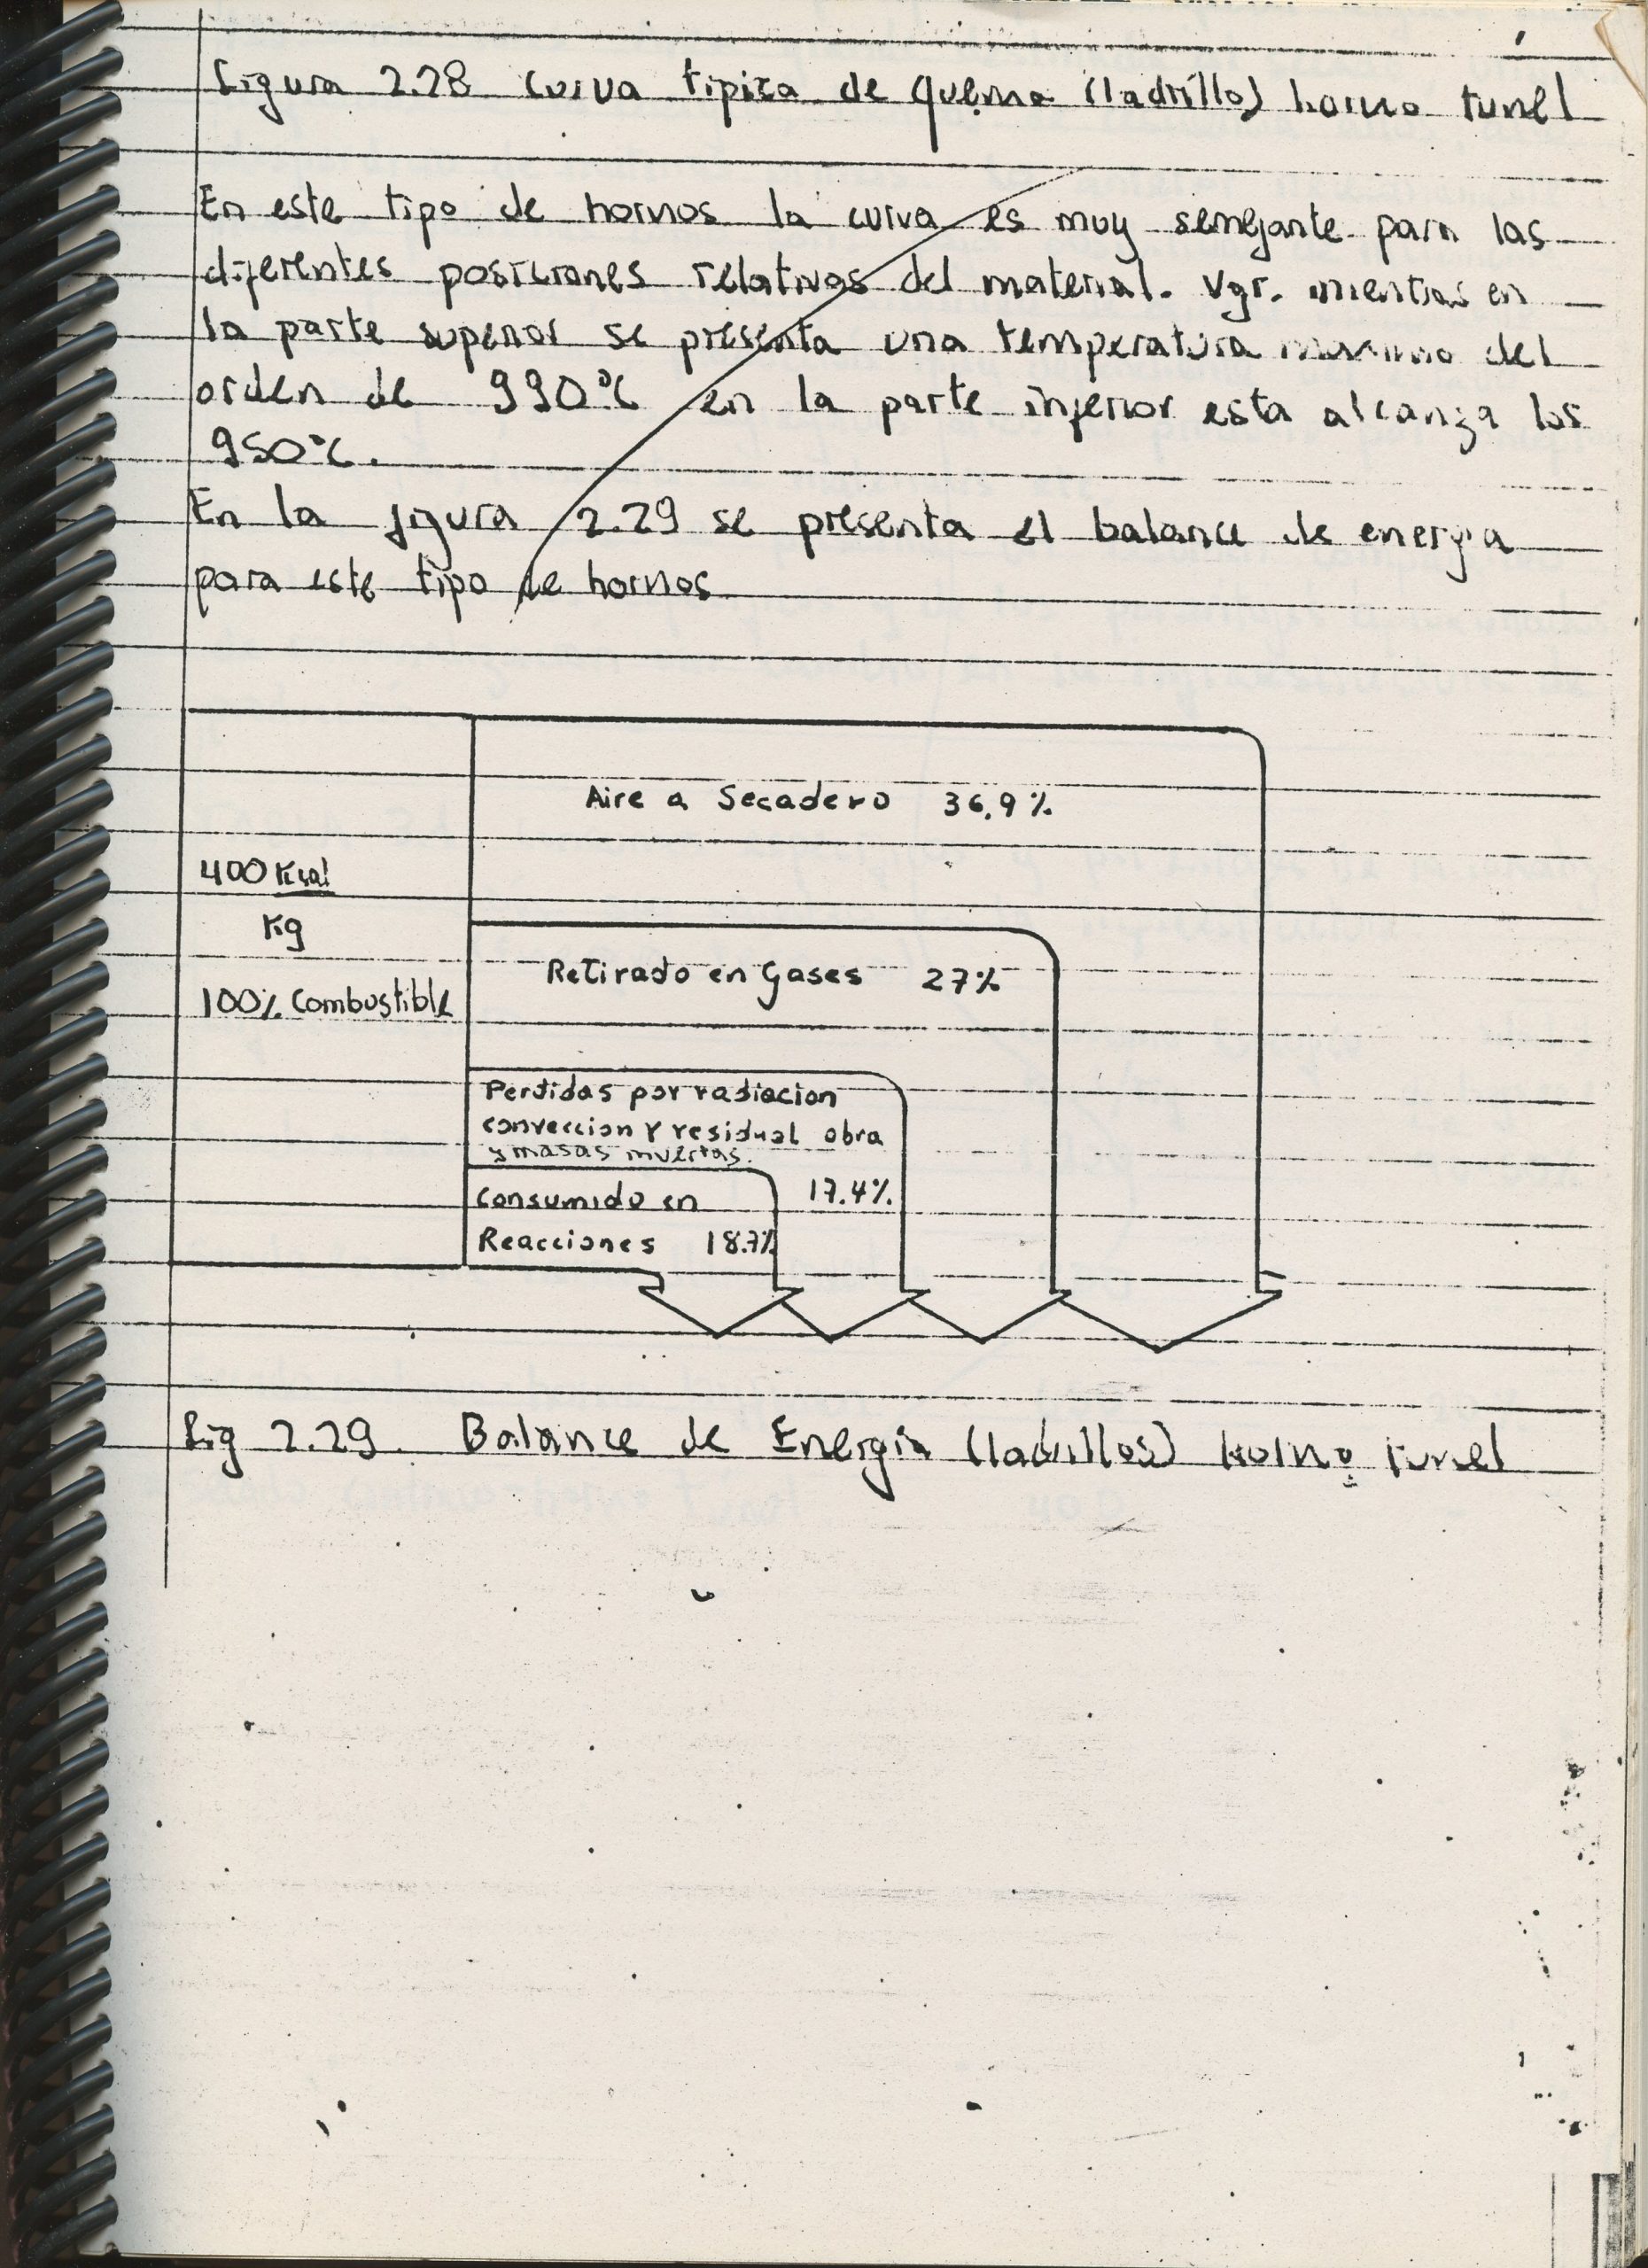 Figura 2.28 Curva tipica de Quema (ladrillo) horno tunel
En este tipo de hornos la curva es muy semejante para las
diferentes posiciones relativas del material. Vgr. mientras en
la parte superior se presenta una temperatura maxima del
orden de 990°C en la parte inferior esta alcanza los
950°C.
En la figura 2.29 se presenta el balance de energia
para este tipo de hornos
Aire a Secadero 36,9%
400 Kcal
Kg
Retirado en Gases 27%
100% Combustible
Perdidas por radiacion
conveccion y residual obra
y masas muertas.
17.4%
Consumido en
Reacciones 18.7%
Fig 2.29. Balance de Energia (ladrillos) Horno tunel